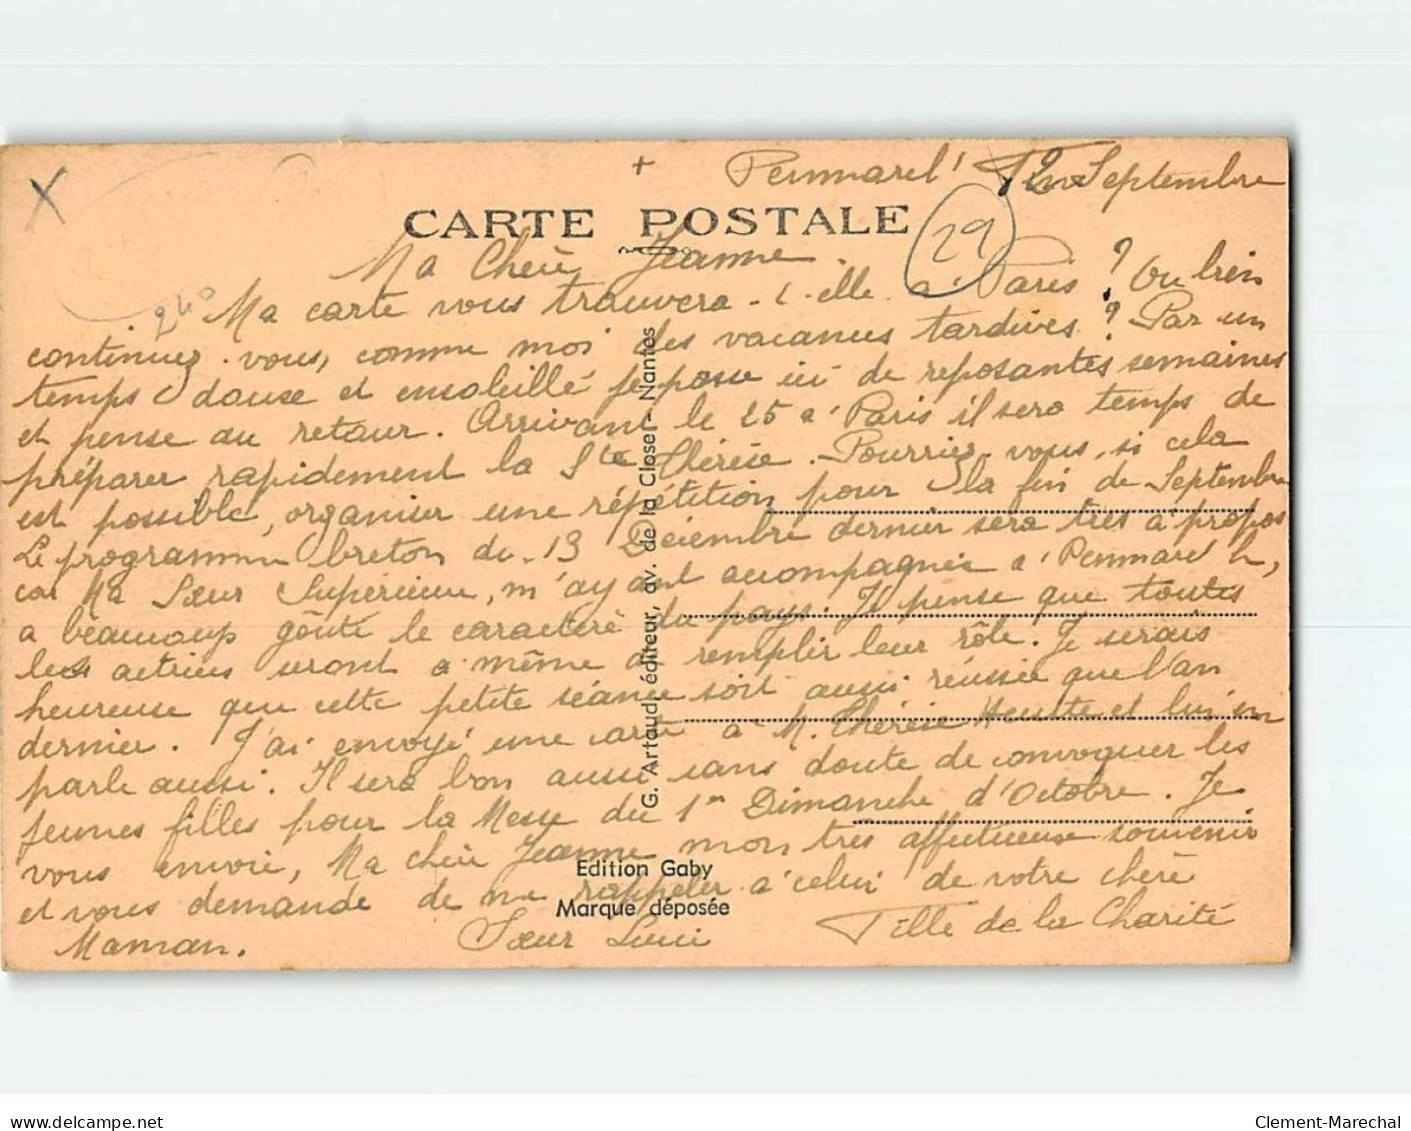 +
Penmarch 12 Septembre
CARTE POSTALE
29
Ma Chère Jeanne.
240
Ma carte vous trouvera-t-elle à Paris ? Ou bien
continuez-vous, comme moi des vacances tardives ? Par un
temps doux et ensoleillé je passe ici de reposantes semaines
et pense au retour. Arrivant le 25 à Paris il sera temps de
préparer rapidement la Ste Thérèse. Pourriez-vous, si cela
est possible, organiser une répétition pour la fin de Septembre
Le programme breton du 13 Décembre dernier sera très à propos
car Ma Sœur Supérieure, m'ayant accompagnée à Penmarch,
a beaucoup goûté le caractère du pays. Je pense que toutes
les actrices seront à même de remplir leur rôle. Je serais
heureuse que cette petite séance soit aussi réussie que l'an
dernier. J'ai envoyé une carte à M. Thérèse et lui en
parle aussi. Il sera bon aussi sans doute de convoquer les
jeunes filles pour la Messe du 1er Dimanche d'Octobre. Je
vous envoie, Ma chère Jeanne mon très affectueux souvenir
et vous demande de me rappeler à celui de votre chère
Maman. Sœur Luci Fille de la Charité
G. Artaud, éditeur, av. de la Close - Nantes
Edition Gaby
Marque déposée
delcampe.net
Clement-Marechal